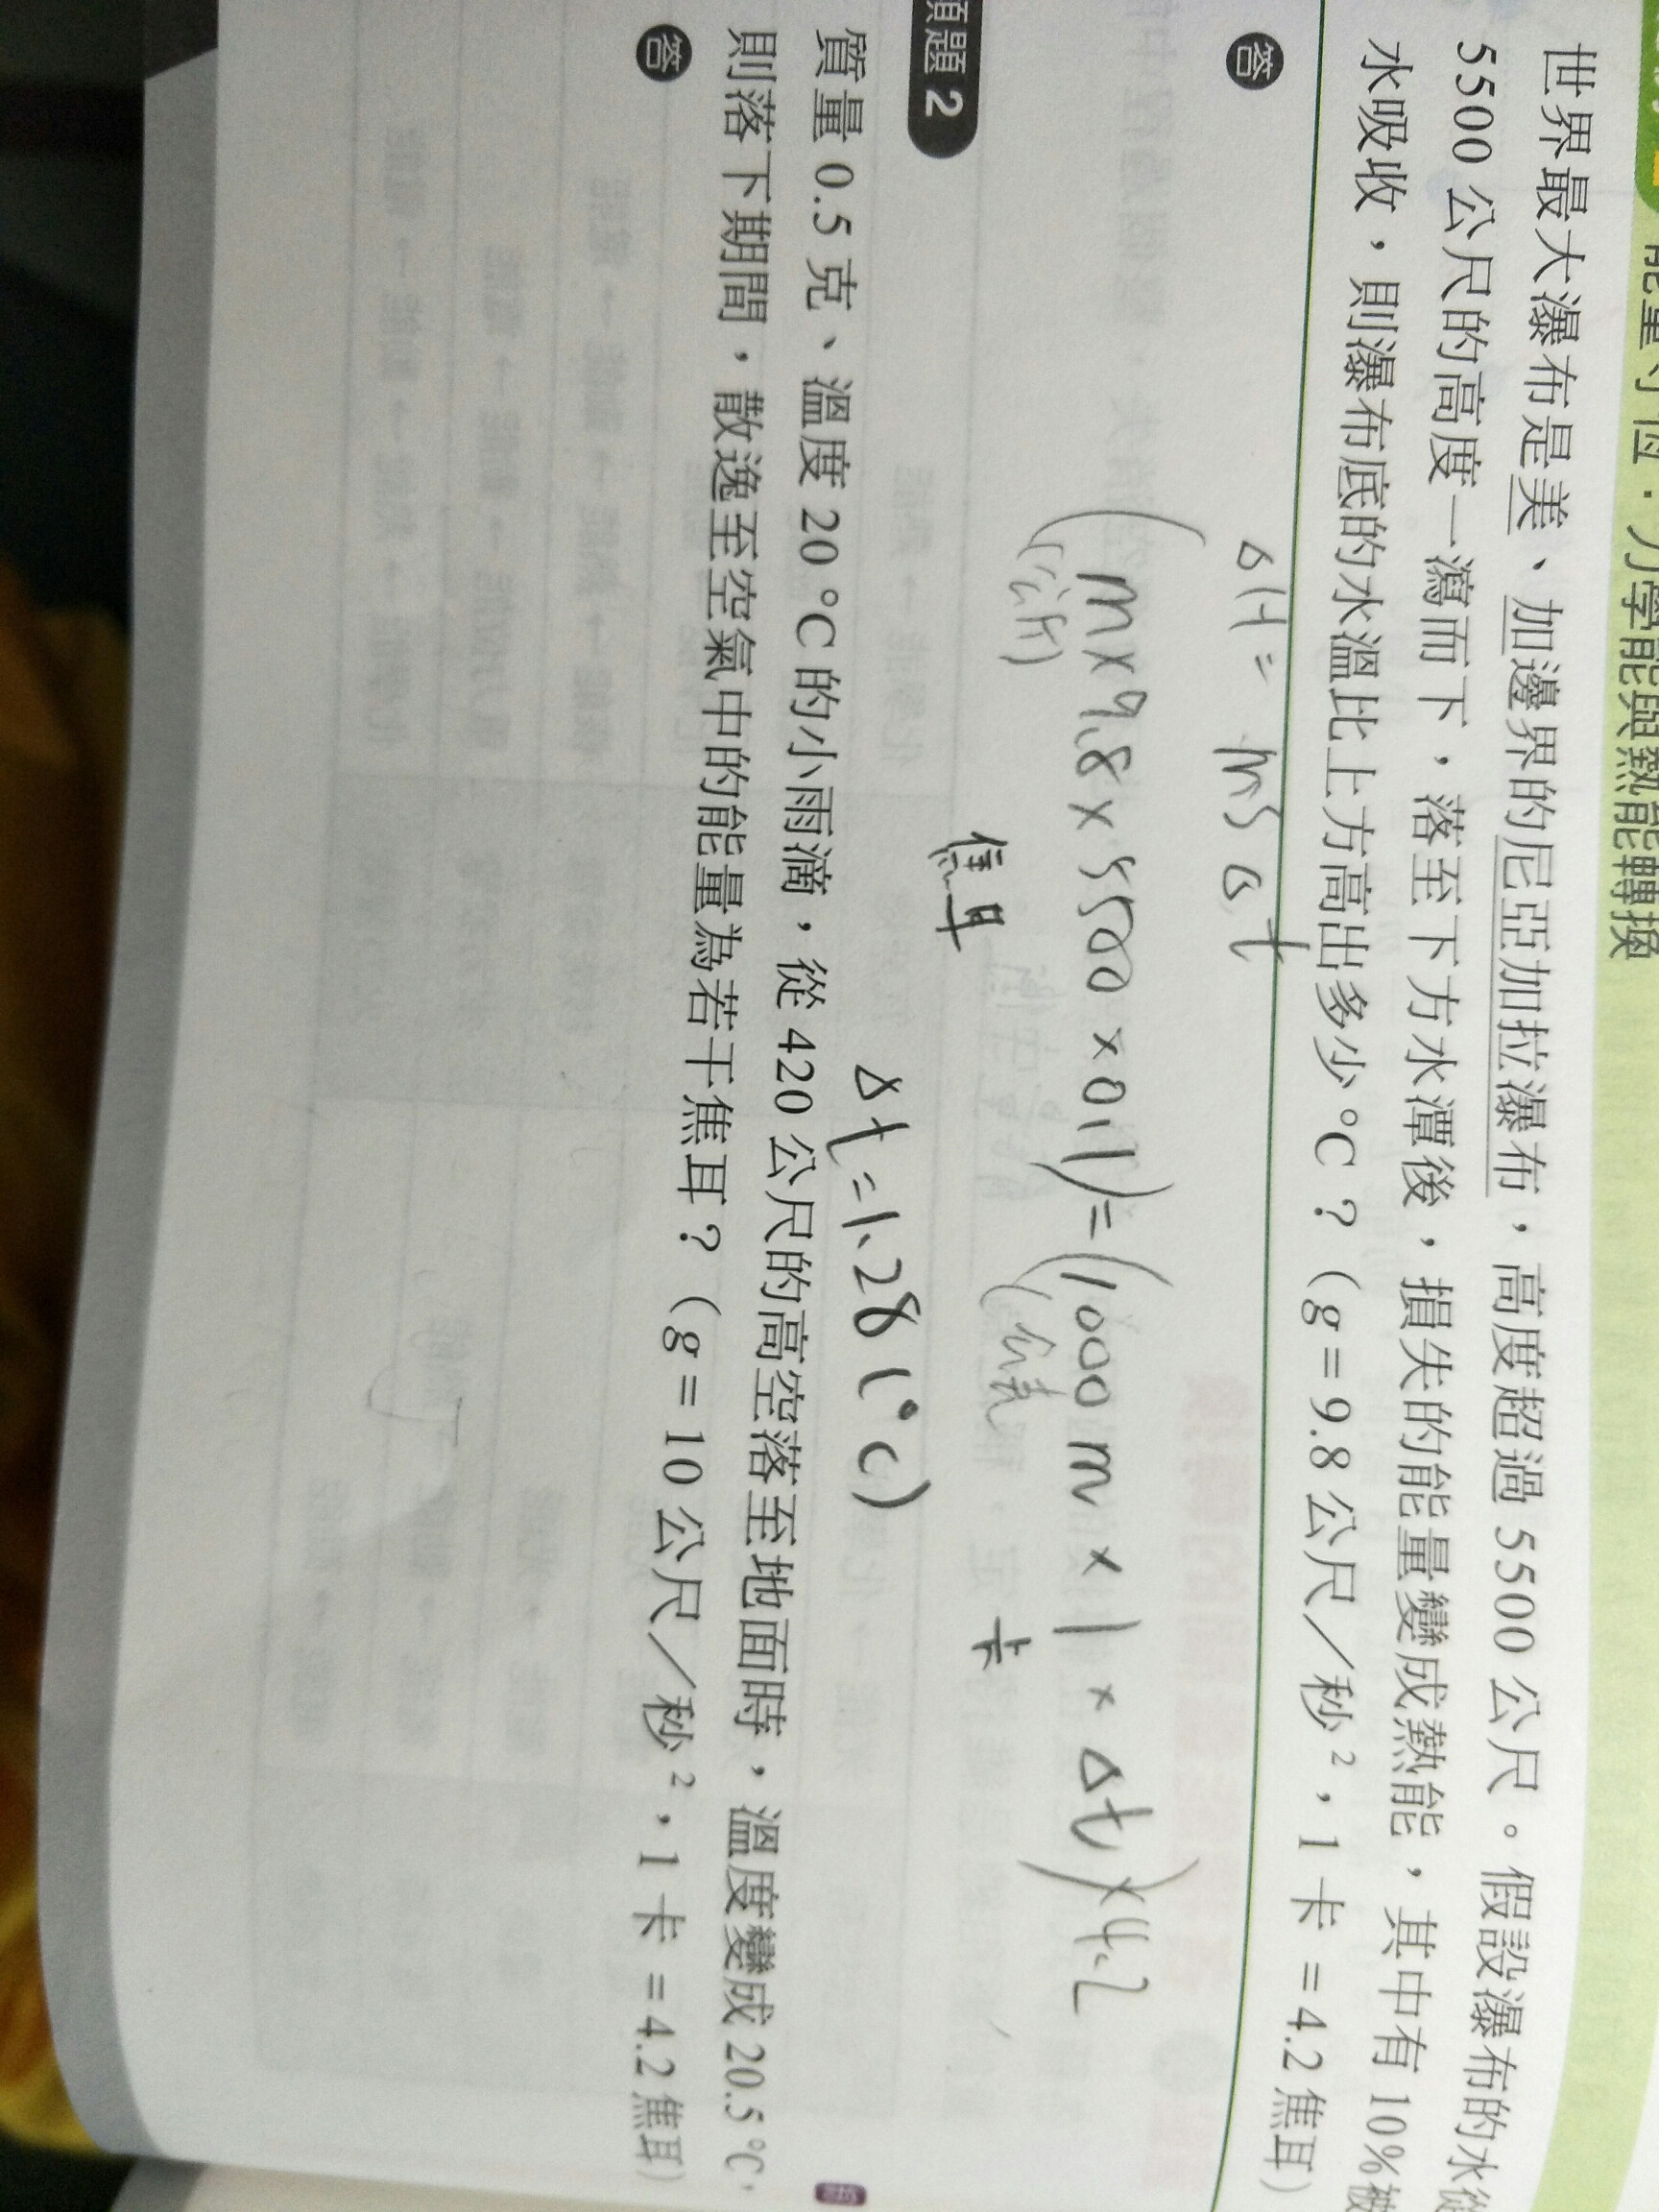 能量守恆．力學能與熱能轉換
世界最大瀑布是美、加邊界的尼亞加拉瀑布，高度超過 5500 公尺。假設瀑布的水從
5500 公尺的高度一瀉而下，落至下方水潭後，損失的能量變成熱能，其中有 10%被
水吸收，則瀑布底的水溫比上方高出多少 °C？（g＝9.8 公尺／秒²，1 卡 ＝4.2 焦耳）
答
ΔH = m s Δt
(m×9.8×5500×0.1)=(1000m×1×Δt)×4.2
(公斤) (公克)
焦耳 卡
Δt=1.28(°C)
類題 2
質量 0.5 克、溫度 20 °C 的小雨滴，從 420 公尺的高空落至地面時，溫度變成 20.5 °C，
則落下期間，散逸至空氣中的能量為若干焦耳？（g＝10 公尺／秒²，1 卡 ＝4.2 焦耳）
答